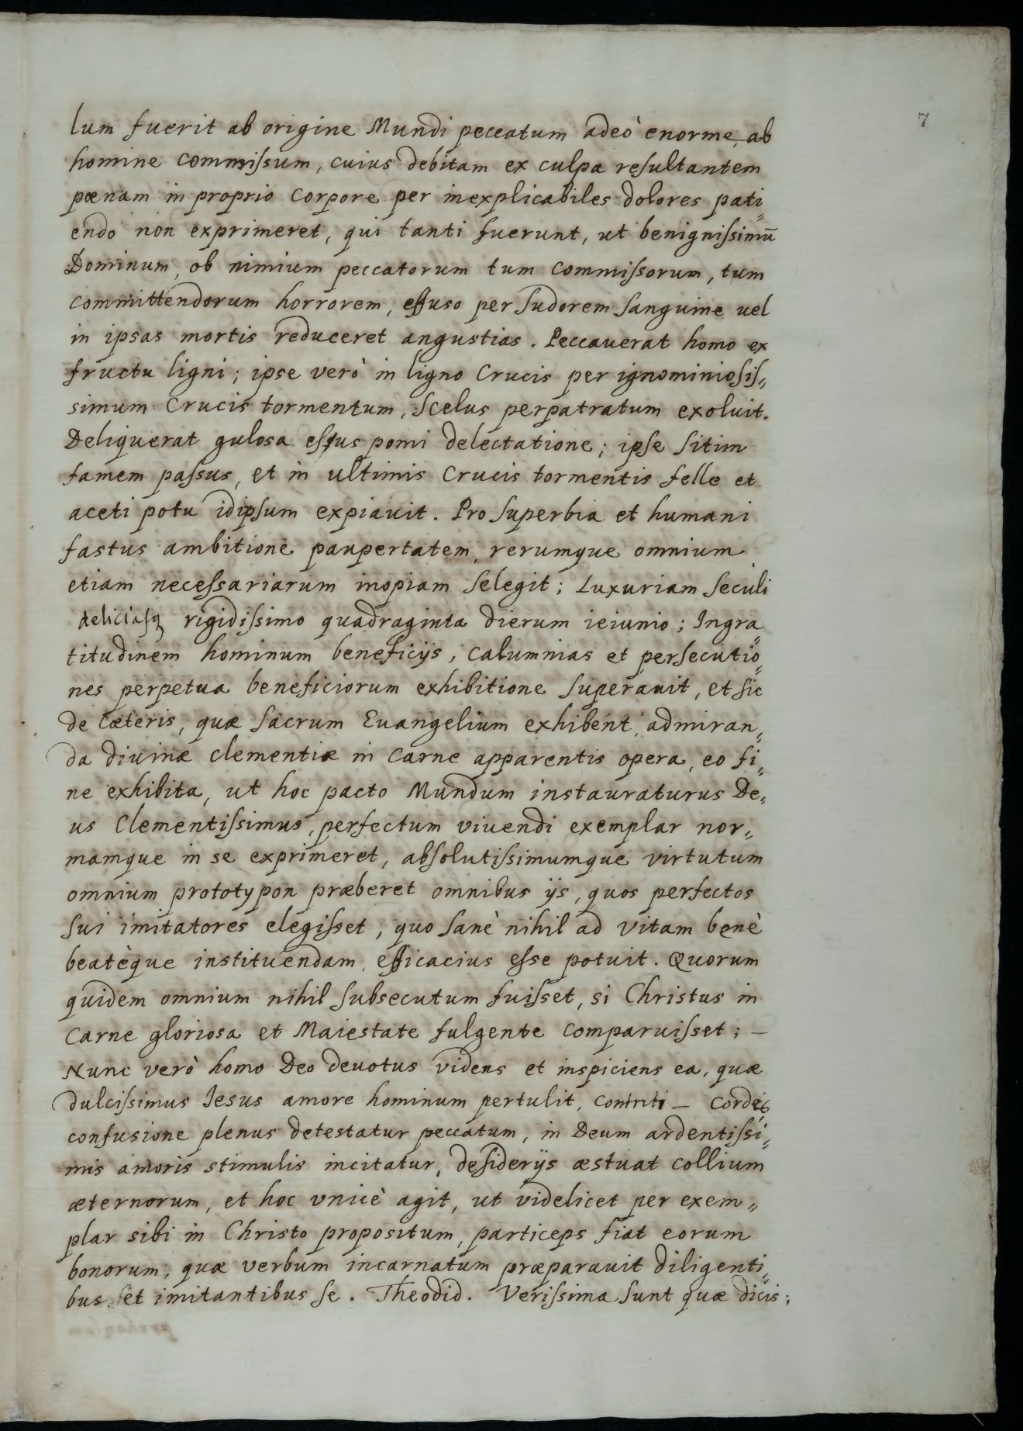 7
lum fuerit ab origine Mundi peccatum adeò enorme, ab
homine commiſsum, cuius debitam ex culpa reſultantem
pœnam in proprio corpore per inexplicabiles dolores pati„
endo non exprimeret, qui tanti fuerunt, ut benigniſsimū
Dominum, ob nimium peccatorum tum commiſsorum, tum
committendorum horrorem, effuso per ſudorem ſanguine uel
in ipsas mortis reduceret angustias. Peccauerat homo ex
fructu ligni; ipse verò in ligno Crucis per ignominiosiſ„
simum Crucis tormentum, ſcelus perpatratum exoluit.
Deliquerat gulosa eſus pomi delectatione; ipſe ſitim
famem paſsus, et in ultimis Crucis tormentis felle et
aceti potu idipſum expiauit. Pro ſuperbia et humani
fastus ambitione paupertatem, rerumque omnium
etiam neceſsariarum inopiam ſelegit; Luxuriam ſeculi
deliciaſq rigidiſsimo quadraginta dierum ieiunio; Ingra„
titudinem hominum beneficijs, calumnias et perſecutio„
nes perpetua beneficiorum exhibitione ſuperauit, et ſic
de cæteris, quæ ſacrum Euangelium exhibent, admiran„
da diuinæ clementiæ in carne apparentis opera, eo fi„
ne exhibita, ut hoc pacto Mundum instauraturus De„
us Clementiſsimus, perfectum viuendi exemplar nor„
mamque in se exprimeret, abſolutiſsimumque virtutum
omnium prototypon præberet omnibus ijs, quos perfectos
ſui imitatores elegiſset, quo ſanè nihil ad vitam benè
beatèque instituendam efficacius eſse potuit. Quorum
quidem omnium nihil ſubsecutum fuiſset, si Christus in
carne gloriosa et Maiestate fulgente comparuiſset; —
Nunc verò homo Deo deuotus videns et inspiciens ea, quæ
dulciſsimus Jesus amore hominum pertulit, contriti — cordis
confusione plenus detestatur peccatum, in Deum ardentiſsi„
mis amoris stimulis incitatur, deſiderijs æstuat collium
æternorum, et hoc vnicè agit, ut videlicet per exem„
plar sibi in Christo propositum, particeps fiat eorum
bonorum, quæ verbum incarnatum præparauit diligenti„
bus et imitantibus ſe. Theodid. Veriſsima ſunt quæ dicis;